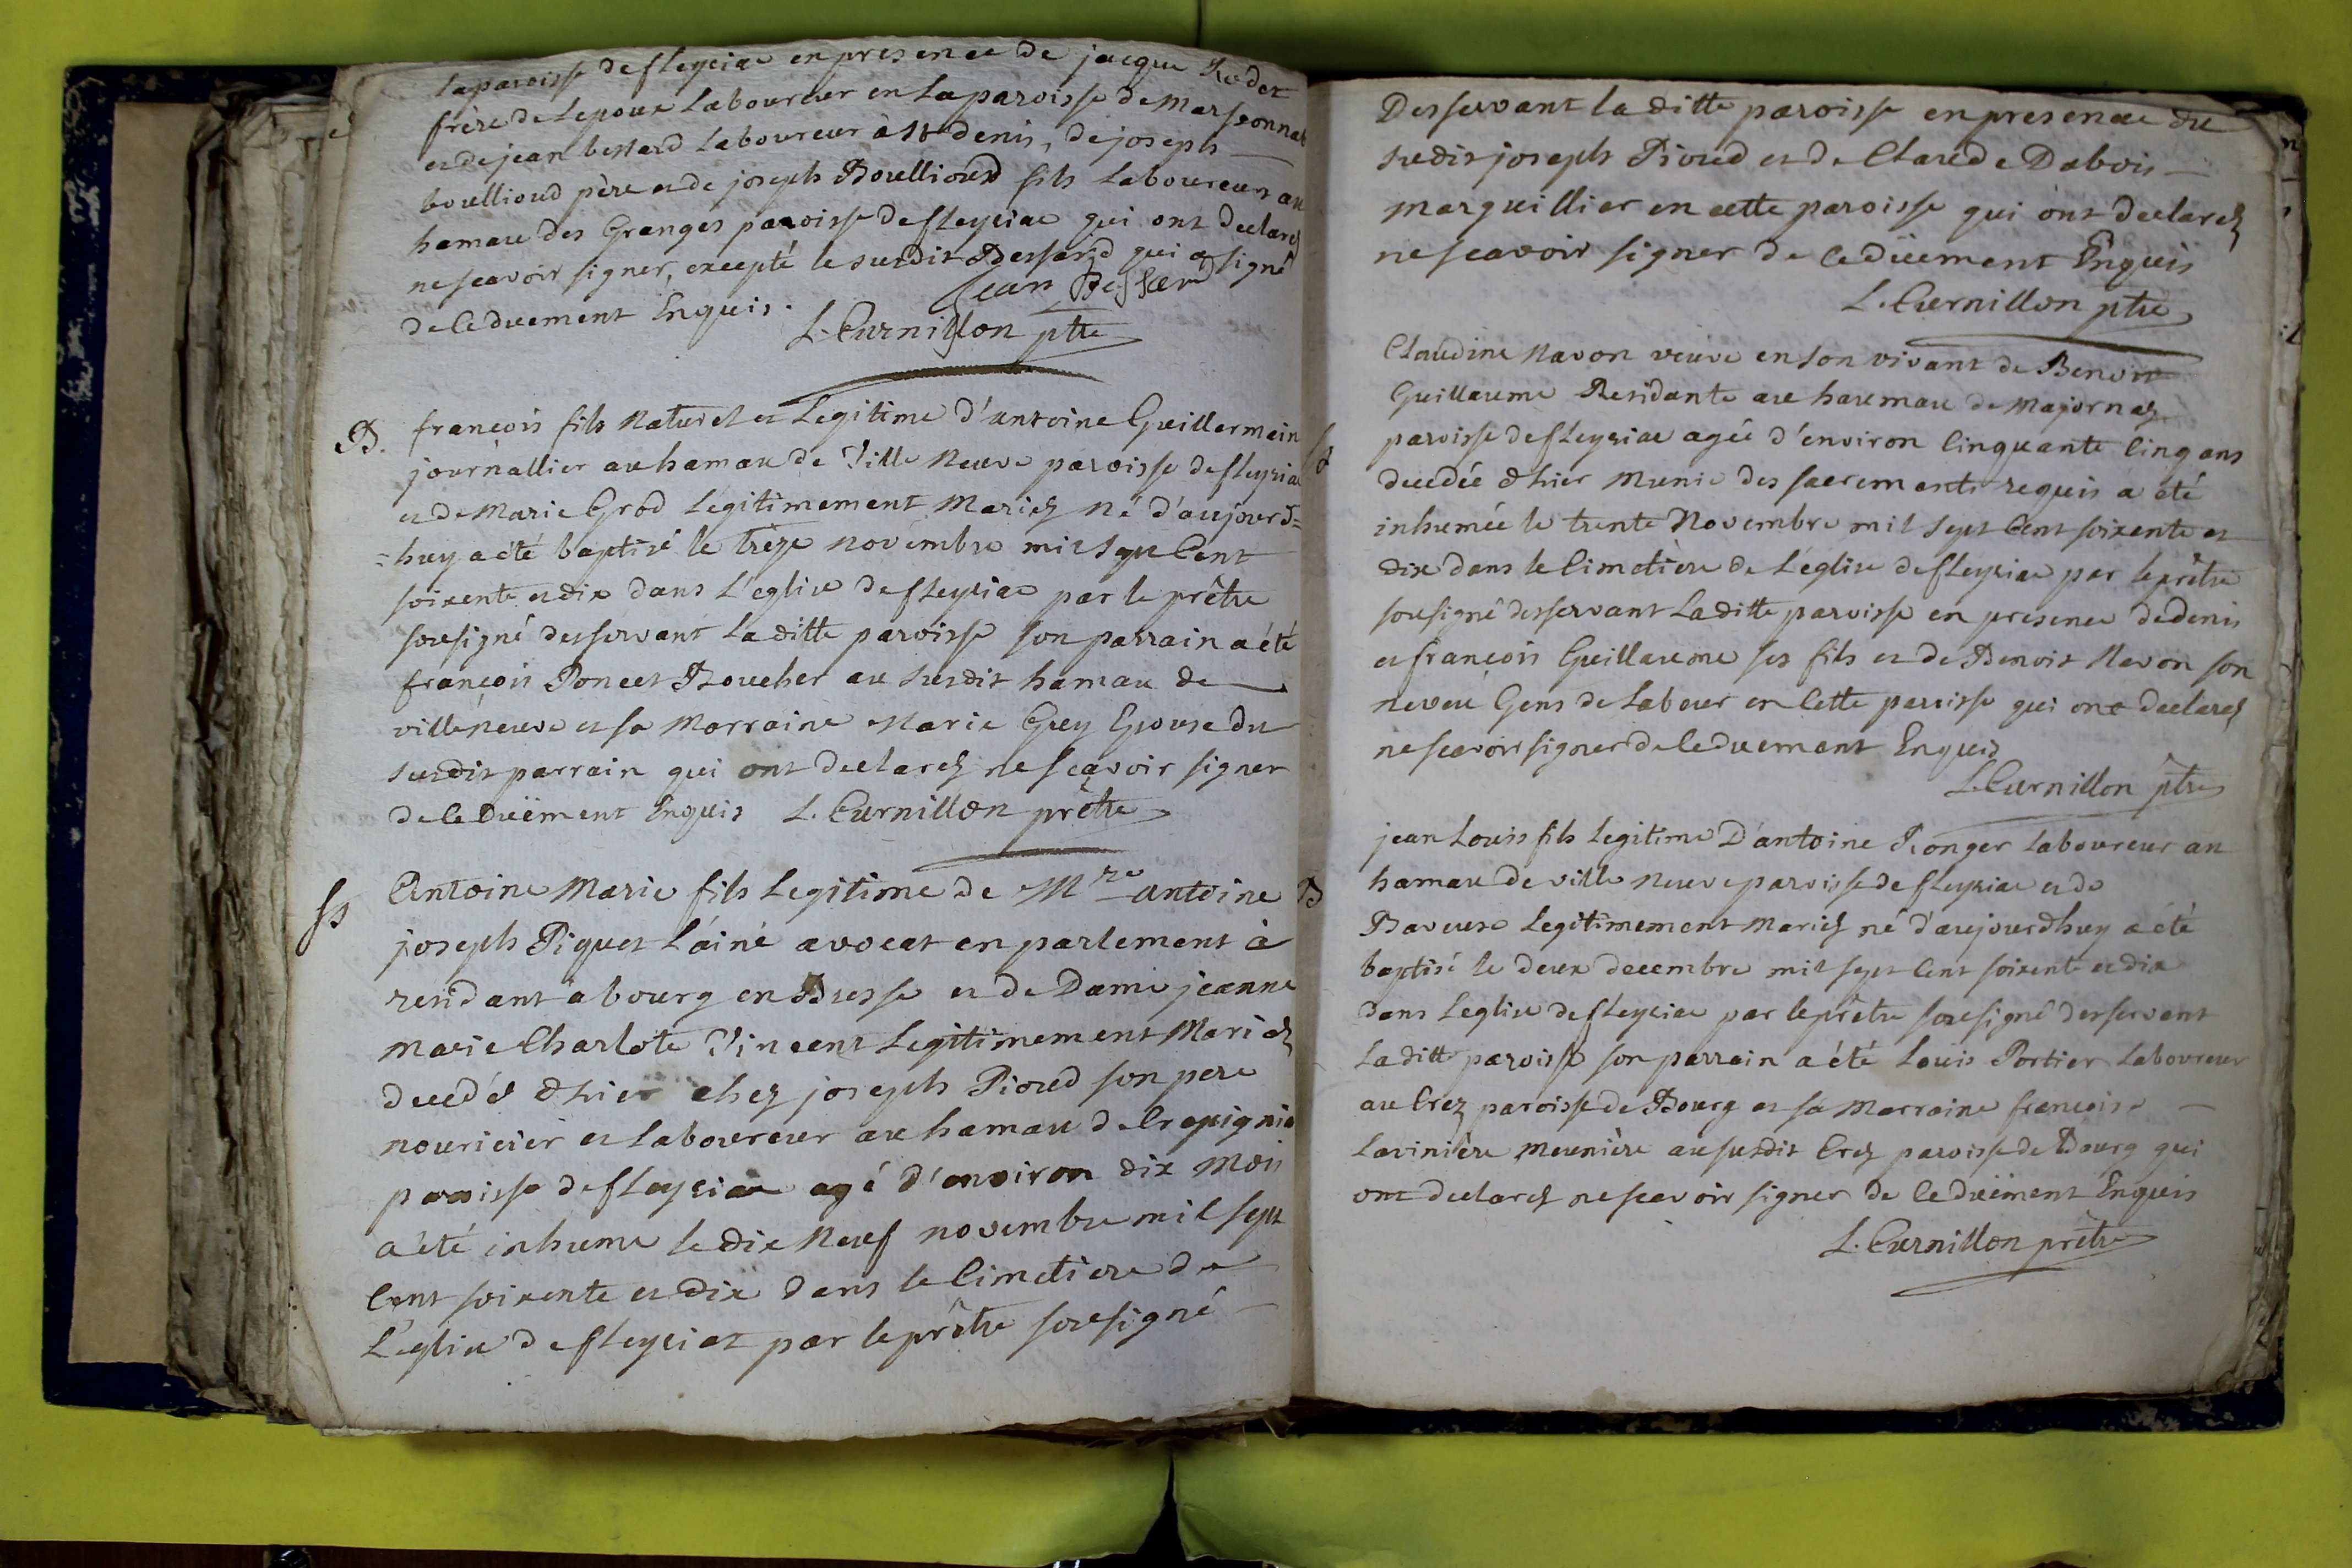 la paroisse de fleyriac en presence de jacque Rodet
frère de Lepoux Laboureur en la paroisse de Marsonnat
et de jean bessard Laboureur à St denis, de joseph
boullioud père et de joseph Boullioud fils Laboureurs au
hamau des Granges paroisse de fleyriac qui ont declarez
ne scavoir signer, excepté le susdit Bessard qui a signé
de ce duement Enquis.
Jean Bessard
L. Curnillon ptre
B. françois fils Naturel et Legitime d'antoine Guillermin
journallier au hamau de Ville Neuve paroisse de fleyriac
et de Marie Grod Légitimement Mariez né d'aujourd=
=huy a été baptisé le treze novembre mil sept Cent
soixente et dix dans L'eglise de fleyriac par le prêtre
sousigné desservant La ditte paroisse son parrain a été
françois Poncet Boucher au susdit hamau de
villeneuve et sa Marraine Marie Guy Epouse du
susdit parrain qui ont declarez ne scavoir signer
de ce duëment Enquis L. Curnillon prêtre
S Antoine Marie fils Legitime de Mre antoine
joseph Piquet L'ainé avocat en parlement à
residant a bourg en Bresse et de Dame jeanne
Marie Charlote Vincent Legitimement Mariez
decedé d'hier chez joseph Pioud son pere
nouricier et Laboureur au hamau de Crepignia
paroisse de fleyriac agé d'environ dix Mois
a été inhume le dix Neuf novembre mil sept
Cent soixente et dix dans le Cimetiere de
L'eglise de fleyriat par le prêtre sousigné
Desservant la ditte paroisse en presence du
susdit joseph Pioud et de Claude Dubois
marguillier en cette paroisse qui ont declarez
ne scavoir signer de ce düement Enquis
L. Curnillon ptre
S Claudine Navon veuve en son vivant de Benoit
Guillaume Residante au haumau de Majornas
paroisse de fleyriac agée d'environ Cinquante Cinq ans
decedée d'hier Munie des sacrements requis a été
inhumée le trente Novembre mil sept Cent soixente et
dix dans le Cimetiere de L'église de fleyriac par le prêtre
sousigné desservant La ditte paroisse en presence de denis
et françois Guillaume ses fils et de Benoit Navon son
neveu Gens de Labeur en Cette paroisse qui ont declarez
ne scavoir signer de Ce duement Enquis
L. Curnillon ptre
B jean Louis fils Legitime D'antoine Ronger Laboureur au
hamau de ville Neuve paroisse de fleyriac et de
Baveuse Legitimement Mariez né d'aujourdhuy a été
baptisé le deux decembre mil sept Cent soixente et dix
dans Leglise de fleyriac par le prêtre sousigné desservant
La ditte paroisse son parrain a été Louis Portier Laboureur
au Crez paroisse de Bourg et sa Marraine françoise
Lavinière Meunière au susdit Crez paroisse de Bourg qui
ont declarez ne scavoir signer de Ce duëment Enquis
L. Curnillon prêtre